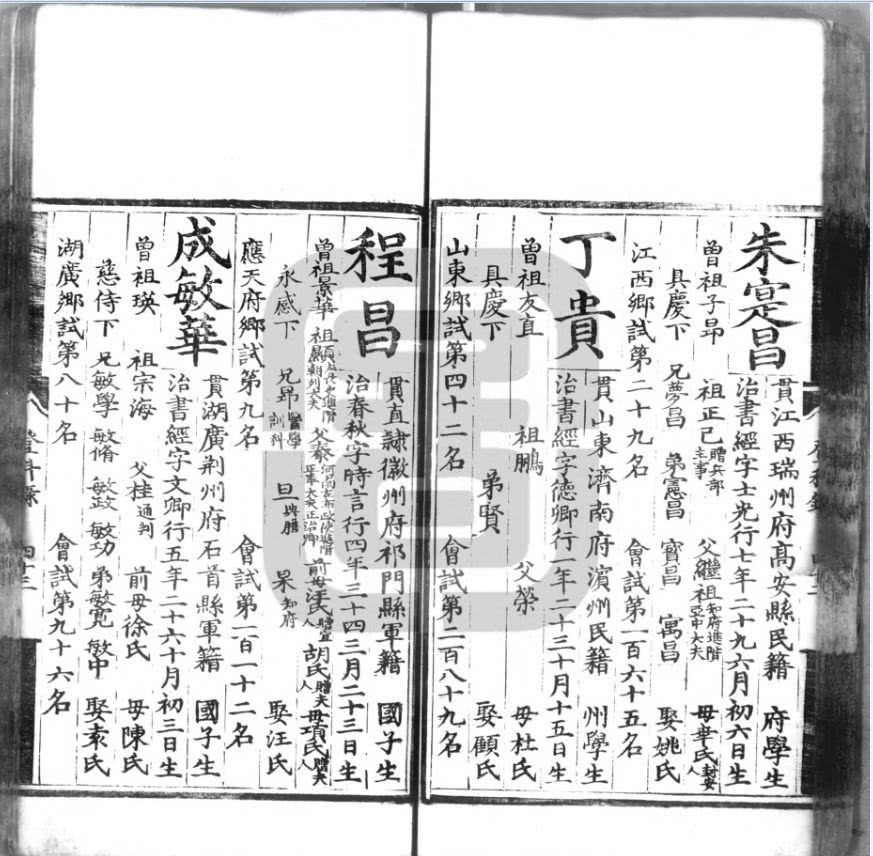 朱寔昌
貫江西瑞州府高安縣民籍 府學生
治書經字士光行七年二十九六月初六日生
曾祖子昻 祖正己贈兵部主事 父繼祖知府進階亞中大夫 母華氏
具慶下 兄夢昌 弟憲昌 寳昌 寓昌 娶姚氏
江西鄉試第二十九名 會試第一百六十五名
丁貴
貫山東濟南府濱州民籍 州學生
治書經字德卿行一年二十三十月十五日生
曾祖友直 祖鵬 父榮 母杜氏
具慶下 弟賢 娶顧氏
山東鄉試第四十二名 會試第二百八十九名
程昌
貫直隷徽州府祁門縣軍籍 國子生
治春秋字時言行四年三十四三月二十三日生
曾祖景華 祖 父泰 前母汪氏 胡氏 母項氏
永感下 兄昻醫學訓科 旦 杲知府 娶汪氏
應天府鄉試第九名 會試第一百一十二名
成敏華
貫湖廣荆州府石首縣軍籍 國子生
治書經字文卿行五年二十六十月初三日生
曾祖瑛 祖宗海 父桂通判 前母徐氏 母陳氏
慈侍下 兄敏學 敏脩 敏政 敏功 弟敏寛 敏中 娶袁氏
湖廣鄉試第八十名 會試第九十六名
登科錄 四十三